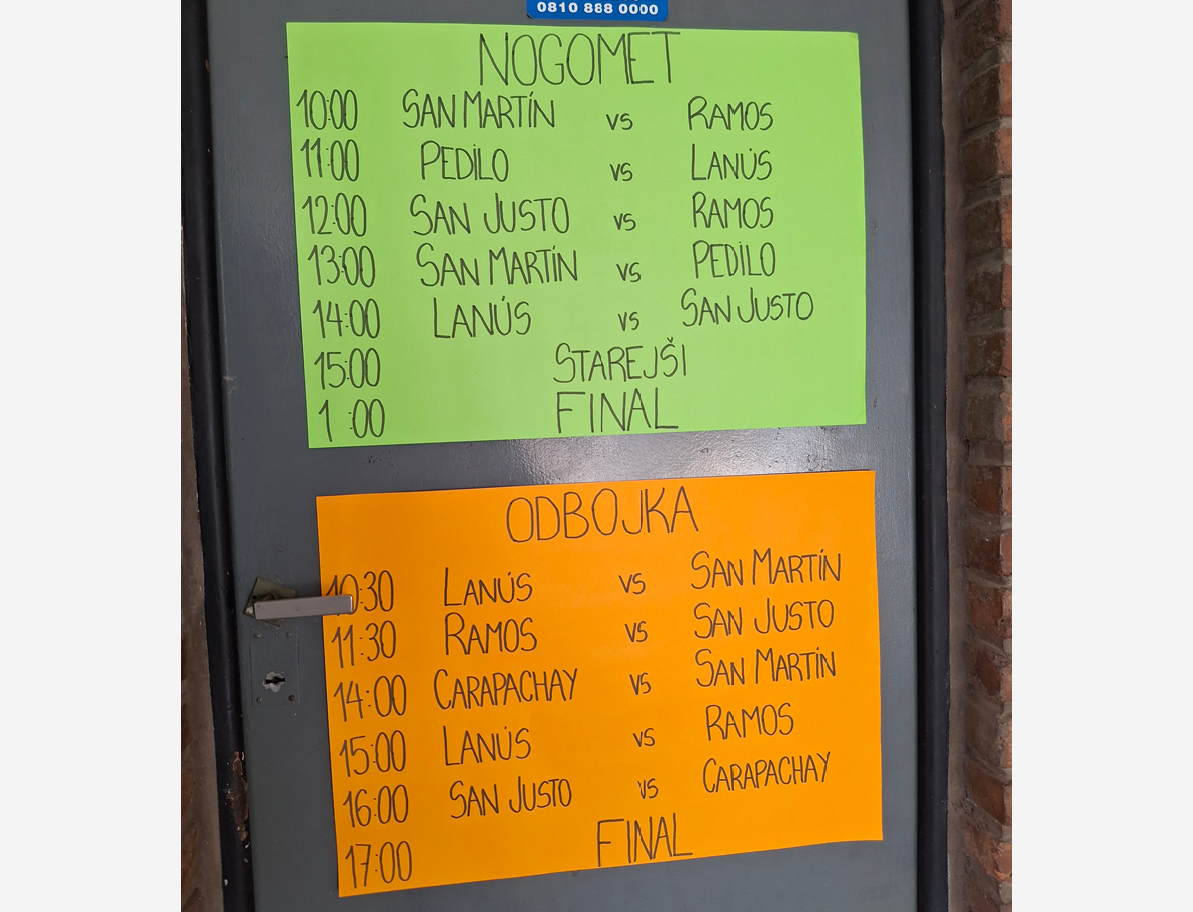 0810 888 0000
NOGOMET
10:00 SAN MARTÍN vs RAMOS
11:00 PEDILO vs LANÚS
12:00 SAN JUSTO vs RAMOS
13:00 SAN MARTÍN vs PEDILO
14:00 LANÚS vs SAN JUSTO
15:00 STAREJŠI
1 :00 FINAL
ODBOJKA
10:30 LANÚS vs SAN MARTÍN
11:30 RAMOS vs SAN JUSTO
14:00 CARAPACHAY vs SAN MARTÍN
15:00 LANÚS vs RAMOS
16:00 SAN JUSTO vs CARAPACHAY
17:00 FINAL